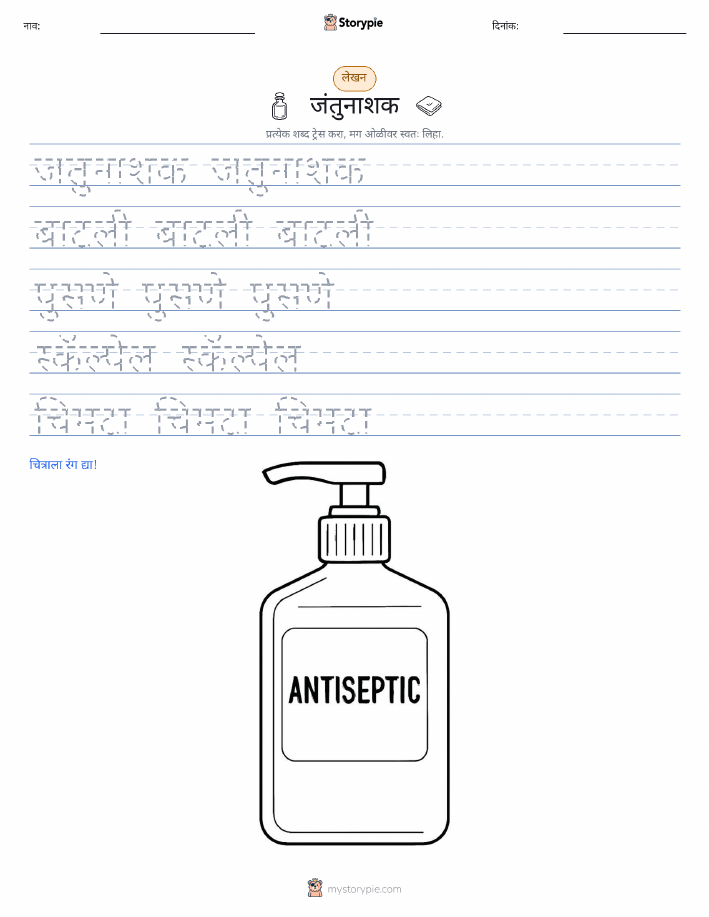 नाव: Storypie दिनांक:
लेखन
जंतुनाशक
प्रत्येक शब्द ट्रेस करा, मग ओळीवर स्वतः लिहा.
जंतुनाशक जंतुनाशक
बाटली बाटली बाटली
पुसणे पुसणे पुसणे
स्कॅल्पेल स्कॅल्पेल
चिमटा चिमटा चिमटा
चित्राला रंग द्या!
ANTISEPTIC
mystorypie.com